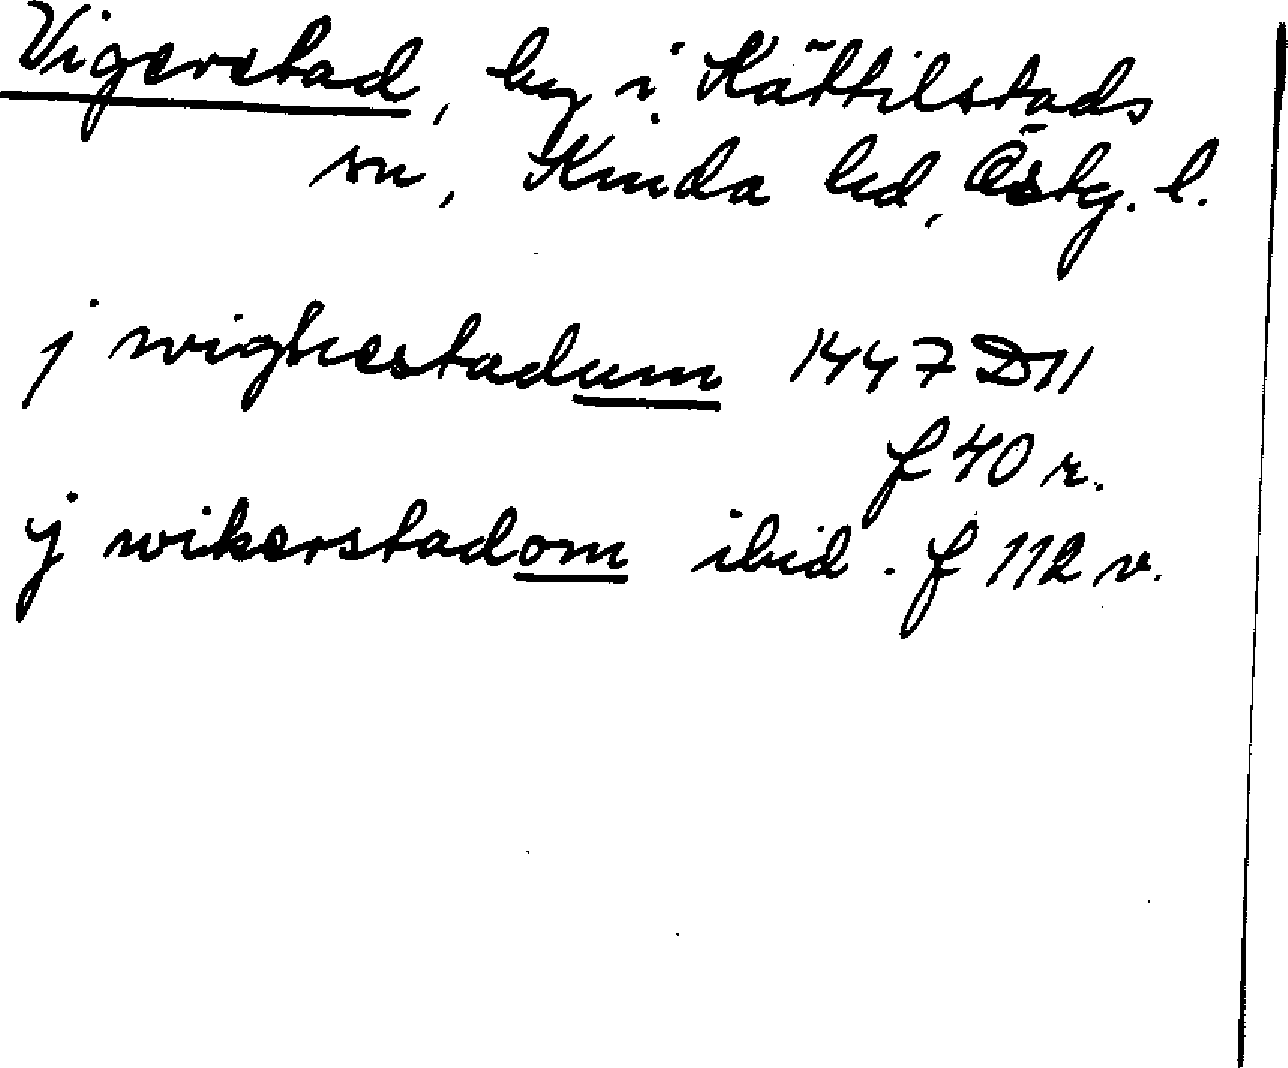 Vigerstad, by i Kättilstads
sn, Kinda hd, Östg. l.
j wighestadum 1447 D11
f 40 r.
j wikerstadom ibid. f 112 v.